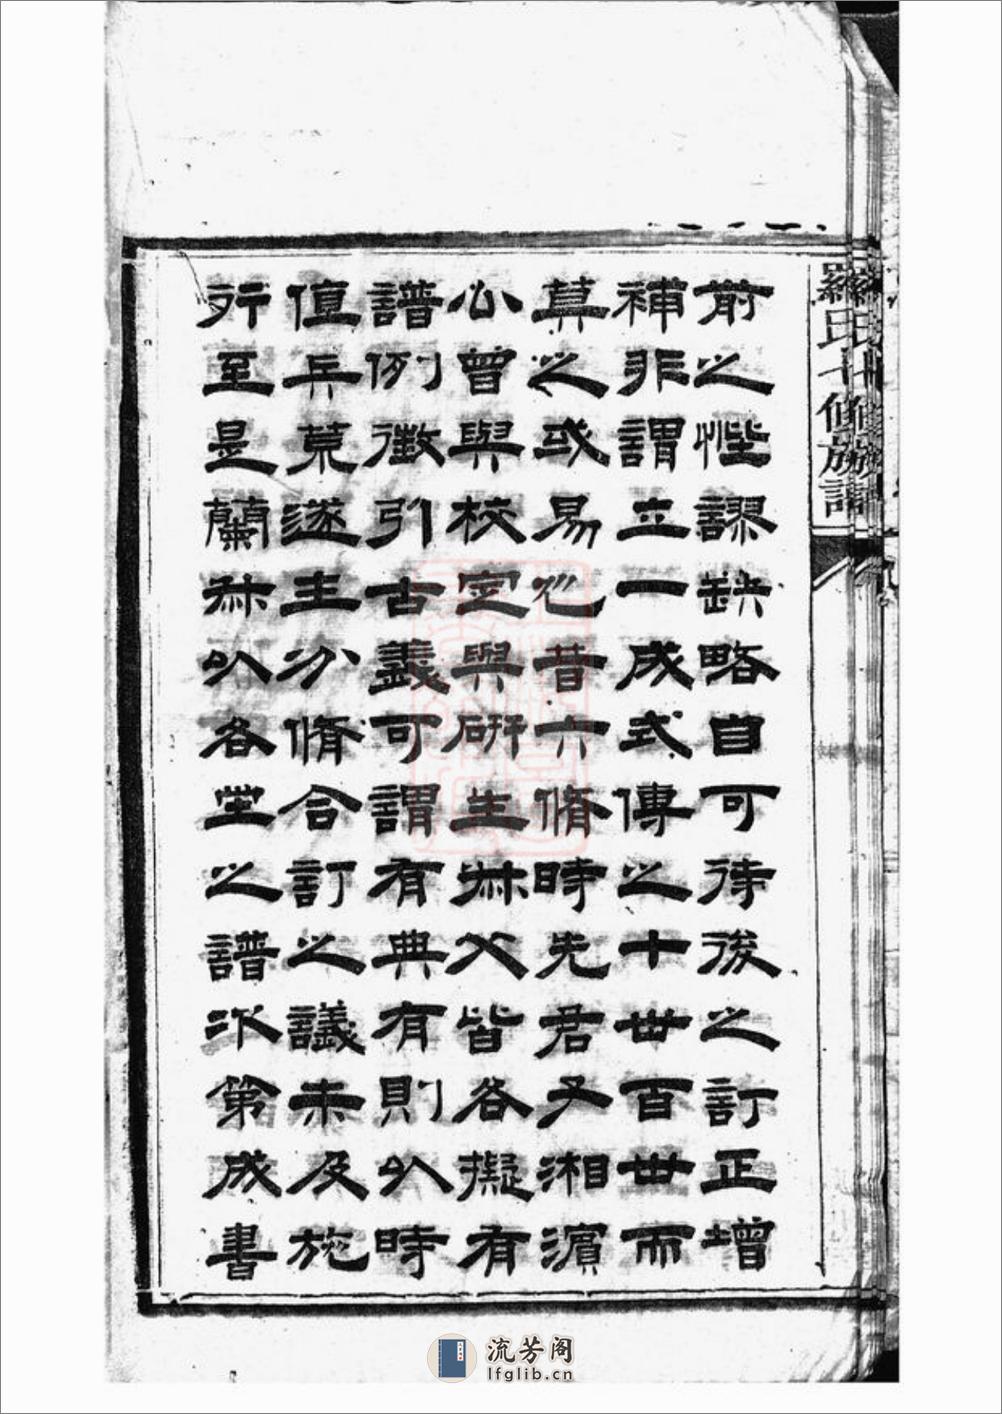 羅氏七修族譜
前之悂謬缺略自可待後之訂正增
補非謂立一成式傳之十世百世而
莫之或易也昔六脩時先君子湘濱
公曾與校定與研生叔父皆各擬有
譜例徵引古義可謂有典有則以時
值兵荒遂主分脩合訂之議未及施
行至是蘭叔以各堂之譜次第成書
流芳阁
lfglib.cn